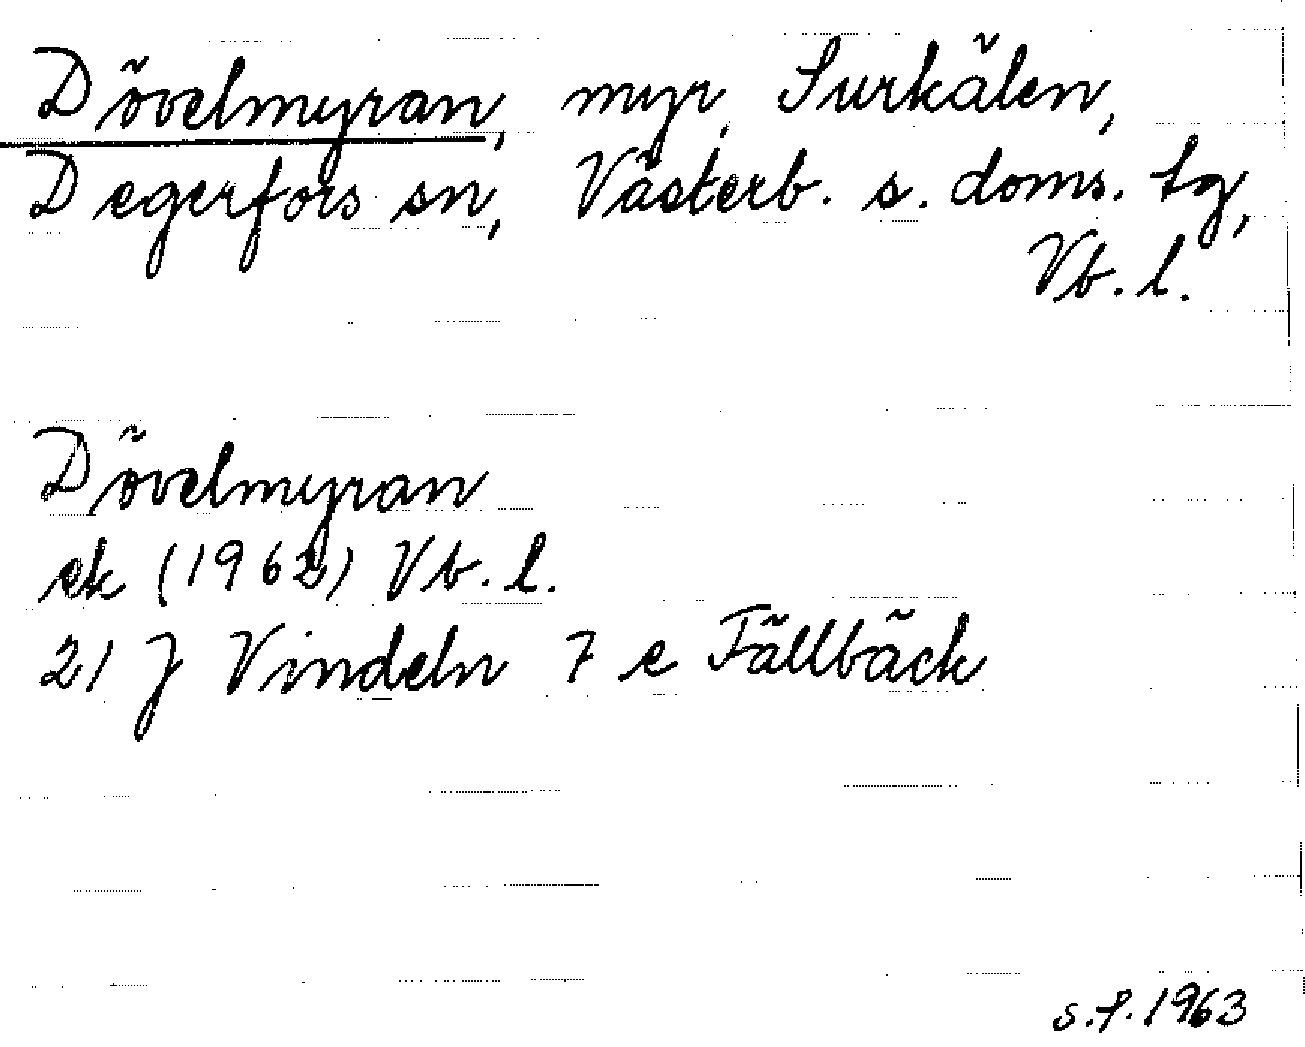 Dövelmyran, myr, Surkälen,
Degerfors sn, Västerb. s. doms. tg,
Vb. l.
Dövelmyran
ek (1962) Vb. l.
21 J Vindeln 7 e Fällbäck
s.f. 1963